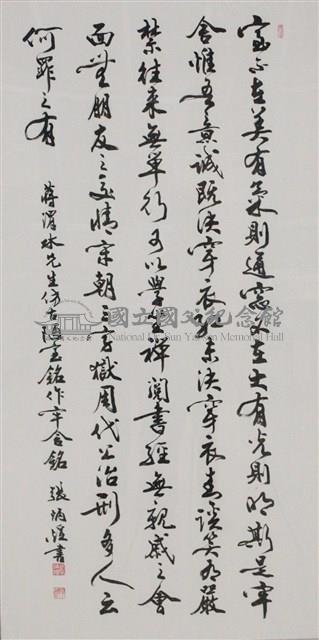 室不在美有氣則通窓不在大有光則明斯是牢
舍惟吾意誠既決穿衣紅未決穿衣青談笑有嚴
禁往来無單行可以學坐禪閱書經無親戚之會
面無朋友之交情宋朝三字獄周代公冶刑吾人云
何罪之有
蔣渭水先生仿古陋室銘作牢舍銘 張炳煌書
國立國父紀念館
National Dr. Sun Yat-sen Memorial Hall